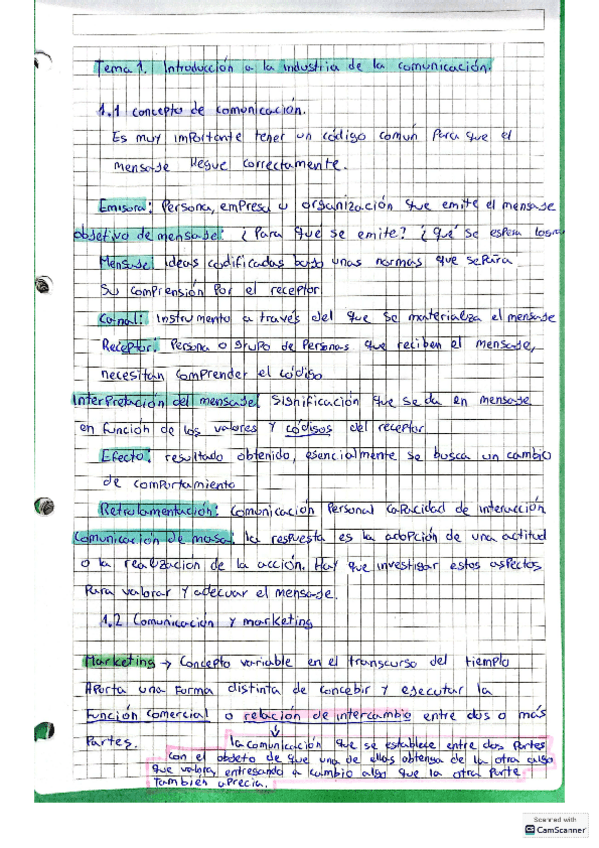 Tema 1. Introducción a la industria de la comunicación.
1.1 concepto de comunicación.
Es muy importante tener un código común para que el
mensaje llegue correctamente.
Emisora: Persona, empresa u organización que emite el mensaje
objetivo de mensaje: ¿Para que se emite? ¿qué se espera
Mensaje: ideas codificadas bajo unas normas que
su comprensión por el receptor
Canal: Instrumento a través del que se materializa el mensaje
Receptor: Persona o grupo de personas que reciben el mensaje,
necesitan comprender el código
Interpretación del mensaje: significación que se da en mensaje
en función de los valores y códigos del receptor
Efecto: resultado obtenido, esencialmente se busca un cambio
de comportamiento
comunicación personal capacidad de interacción
Comunicación de masa: la respuesta es la adopción de una actitud
o la realización de la acción. Hay que investigar estos aspectos
para valorar y adecuar el mensaje.
1.2 Comunicación y marketing
Marketing → Concepto variable en el transcurso del tiempo
Aporta una forma distinta de concebir y ejecutar la
función comercial o relación de intercambio entre dos o más
Partes.
la comunicación que se establece entre dos partes
con el objeto de que una de ellas obtenga de la otra algo
que valora, entregando a cambio algo que la otra parte
también aprecia.
Scanned with
CamScanner